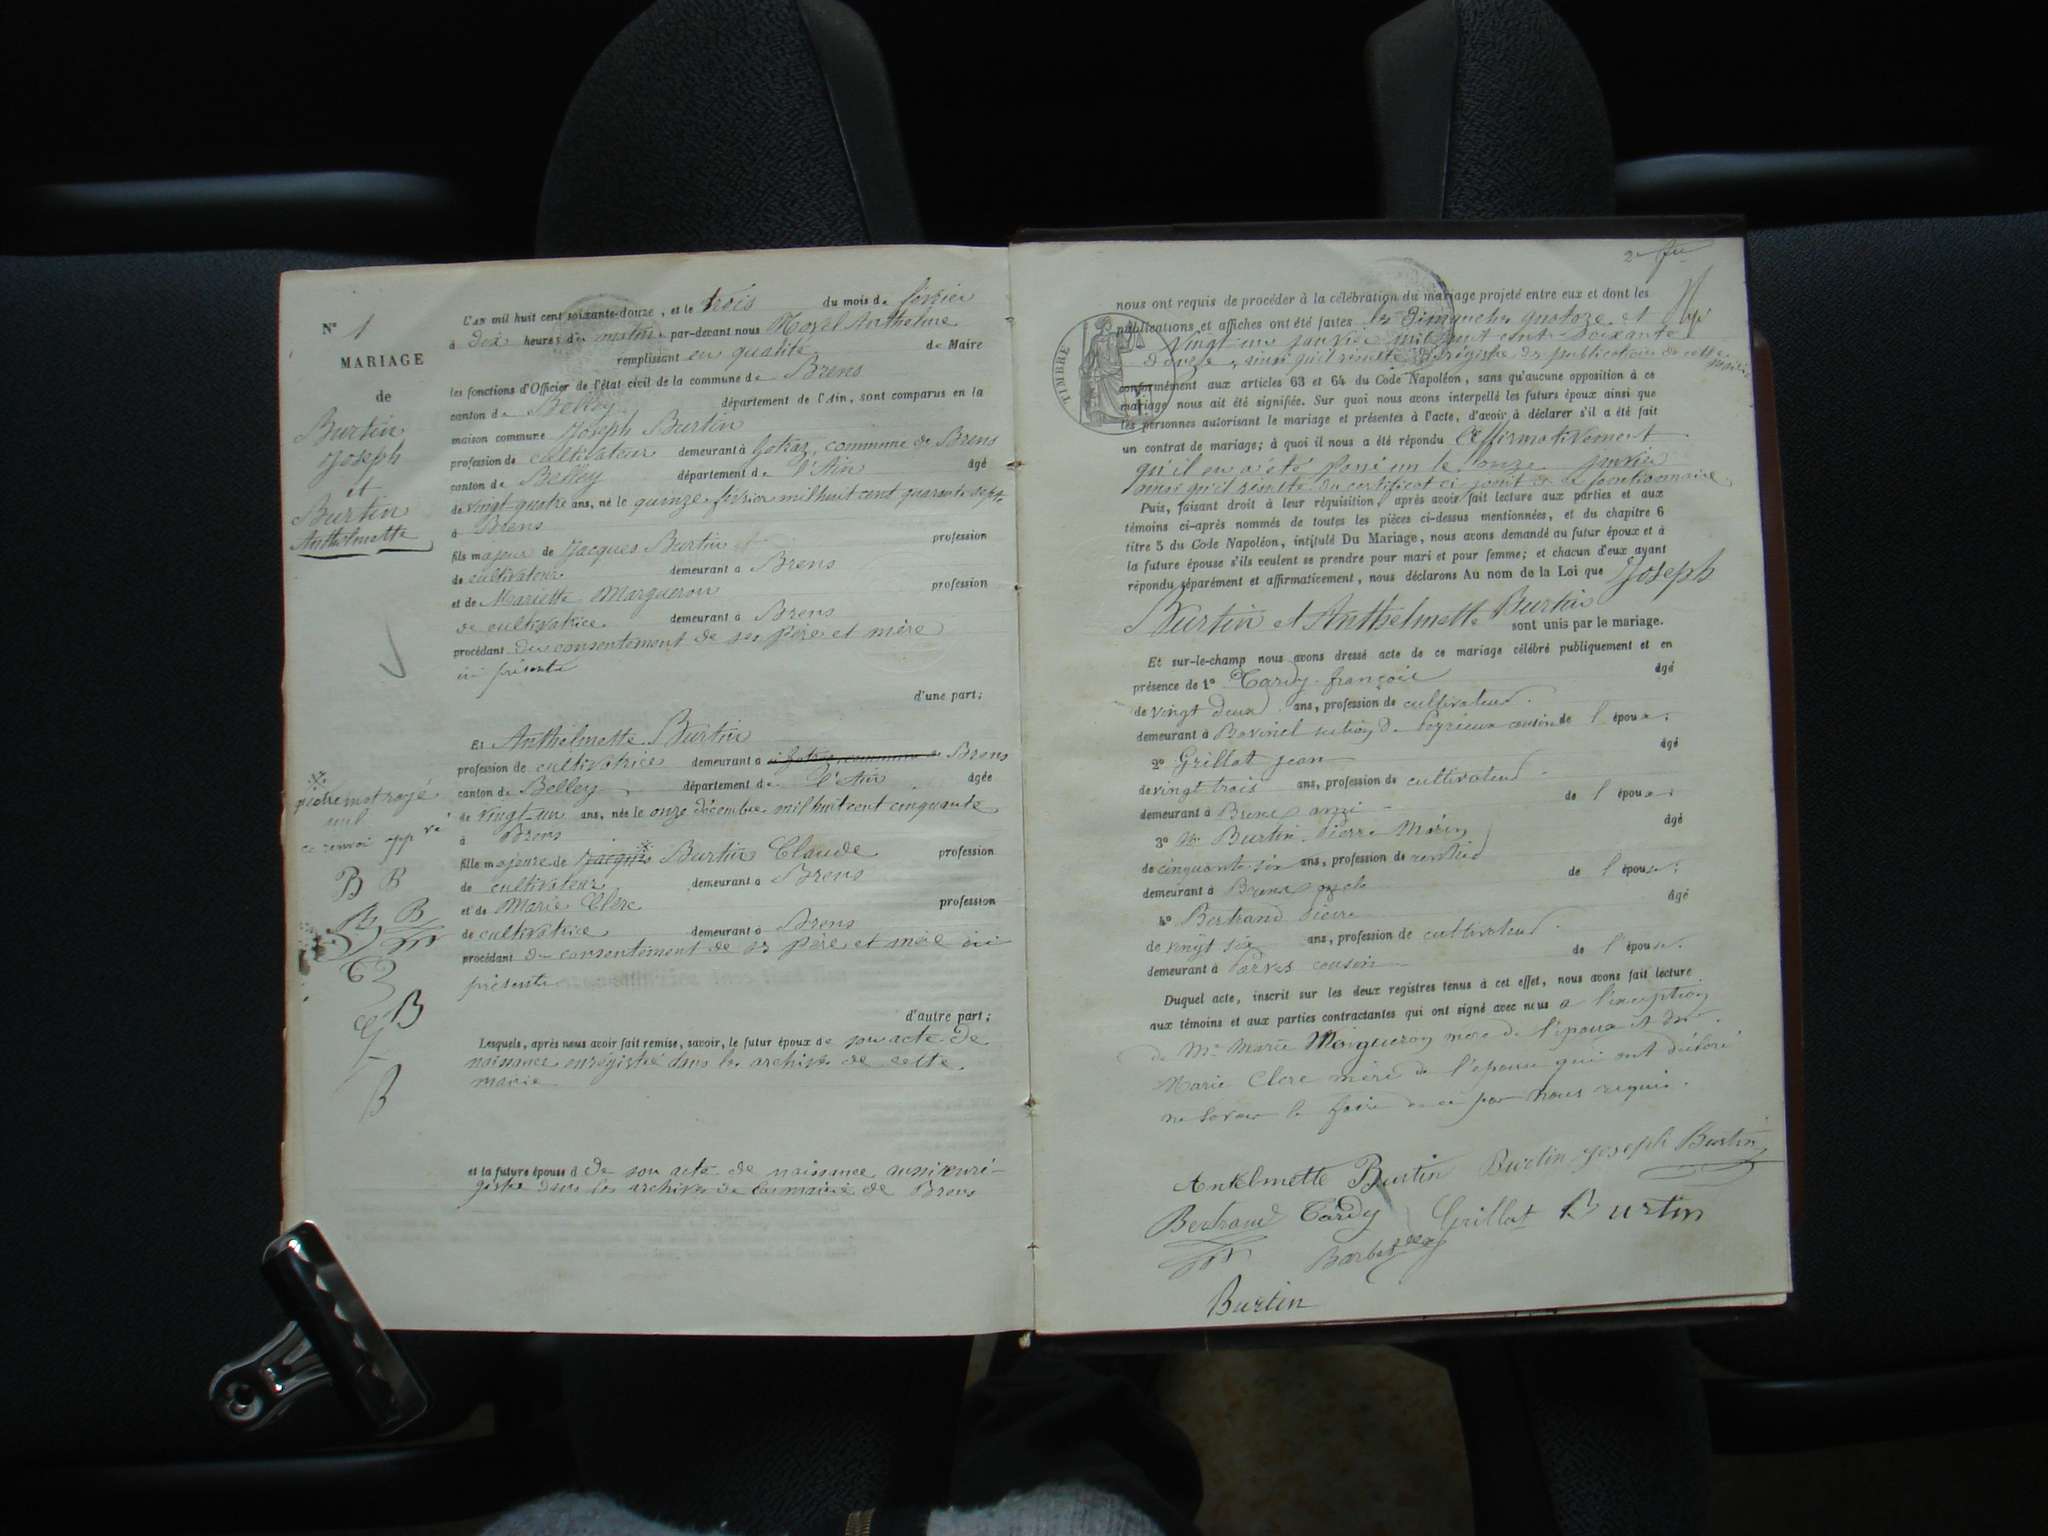 N° 1
MARIAGE
de
Burtin
Joseph
et
Burtin
Anthelmette
L'AN mil huit cent soixante-douze, et le trois du mois de février
à dix heures du matin par-devant nous Moyel Anthelme
remplissant en qualité de Maire
les fonctions d'Officier de l'état civil de la commune de Brens
canton de Belley département de l'Ain, sont comparus en la
maison commune Joseph Burtin
profession de cultivateur demeurant à commune de Brens
canton de Belley département de l'Ain âgé
de vingt-quatre ans, né le quinze février mil huit cent quarante sept
à Brens
fils majeur de Jacques Burtin profession
de cultivateur demeurant à Brens
et de Mariette Margueron profession
de cultivatrice demeurant à Brens
procédant du consentement de ses père et mère
ici présents
d'une part;
Et Anthelmette Burtin
profession de cultivatrice demeurant à Brens
canton de Belley département de l'Ain âgée
de vingt-un ans, née le onze décembre mil huit cent cinquante
à Brens
fille majeure de Jacques Burtin Claude profession
de cultivateur demeurant à Brens
et de Marie Clerc profession
de cultivatrice demeurant à Brens
procédant du consentement de ses père et mère ici
présents
d'autre part;
Lesquels, après nous avoir fait remise, savoir, le futur époux de son acte de
naissance enrégistré dans les archives de cette
mairie
et la future épouse d de son acte de naissance aussi enré-
gistré dans les archives de la mairie de Brens
mot rayé
nul
ce renvoi appvé
B B
B B
B
B
2e
TIMBRE
nous ont requis de procéder à la célébration du mariage projeté entre eux et dont les
publications et affiches ont été faites les dimanches quatorze et
vingt-un janvier mil huit cent soixante
douze, ainsi qu'il résulte du régistre des publications de cette mairie
conformément aux articles 63 et 64 du Code Napoléon, sans qu'aucune opposition à ce
mariage nous ait été signifiée. Sur quoi nous avons interpellé les futurs époux ainsi que
les personnes autorisant le mariage et présentes à l'acte, d'avoir à déclarer s'il a été fait
un contrat de mariage; à quoi il nous a été répondu affirmativement
qu'il en a été passé un le onze janvier
ainsi qu'il résulte du certificat ci joint de ce fonctionnaire
Puis, faisant droit à leur réquisition, après avoir fait lecture aux parties et aux
témoins ci-après nommés de toutes les pièces ci-dessus mentionnées, et du chapitre 6
titre 5 du Code Napoléon, intitulé Du Mariage, nous avons demandé au futur époux et à
la future épouse s'ils veulent se prendre pour mari et pour femme; et chacun d'eux ayant
répondu séparément et affirmativement, nous déclarons Au nom de la Loi que Joseph
Burtin et Anthelmette Burtin sont unis par le mariage.
Et sur-le-champ nous avons dressé acte de ce mariage célébré publiquement et en
présence de 1° Tardy françois âgé
de vingt deux ans, profession de cultivateur
demeurant à section de Peyrieux cousin de l'époux;
2° Grillat jean âgé
de vingt trois ans, profession de cultivateur
demeurant à Brens ami de l'époux;
3° Burtin Pierre Marin âgé
de cinquante-six ans, profession de rentier
demeurant à Brens oncle de l'épouse;
4° Bertrand Pierre âgé
de vingt six ans, profession de cultivateur
demeurant à Parves cousin de l'épouse.
Duquel acte, inscrit sur les deux registres tenus à cet effet, nous avons fait lecture
aux témoins et aux parties contractantes qui ont signé avec nous à l'exception
de Me Marie Margueron mère de l'époux et de
Marie Clerc mère de l'épouse qui ont déclaré
ne savoir le faire de ce par nous requis.
Antelmette Burtin Burtin joseph Burtin
Bertrand Tardy Grillat Burtin
Burtin